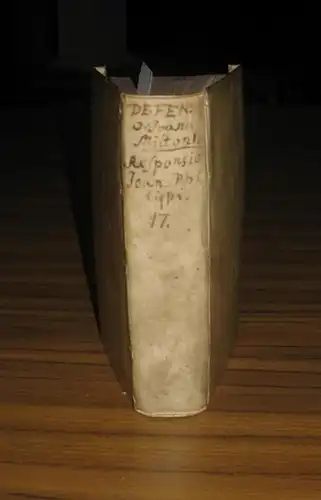 DEFEN.
Miltoni
Responsio
Joan. Phi
lippi.
17.